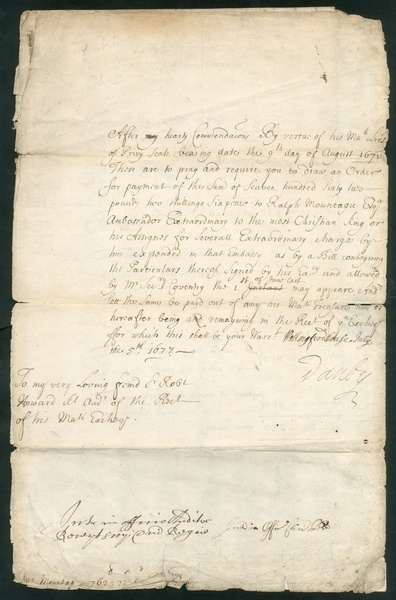 After my hearty Commendacons By vertue of his Mats Lres
of Privy Seale bearing date the 9th day of August 1676
These are to pray and require you to draw an Order
for payment of the Sum of Seaven hundred sixty two
pounds two shillings Six pence to Ralph Mountagu Esqr
Ambassador Extraordinary to the most Christian King or
his Assignes for severall Extraordinary charges by
him expended in that Embassy as by a Bill conteyning
the Particulars thereof Signed by his Exly and allowed
by Mr Secry Coventry the 1 st of June last may appeare And
let the same be paid out of any his Mats Treasure now or
hereafter being and remayning in the Rect of ye Excheqr
ffor which this shall be your Warrt Wallingford House July
the 5th 1677
Danby
To my very Loving freind Sr Robt
Howard Kt Audr of the Rect
of his Mats Excheqr
Intr in officio Auditor
Recept Scrij Dnj Regis
Mountagu 762: 2: